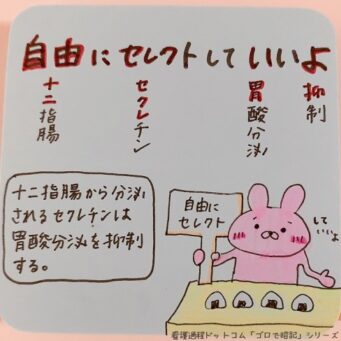 自由にセレクトしていいよ
十二指腸
セクレチン
胃酸分泌
抑制
十二指腸から分泌
されるセクレチンは
胃酸分泌を抑制
する。
自由に
セレクト
して
いいよ
看護過程ドットコム「ゴロで暗記」シリーズ